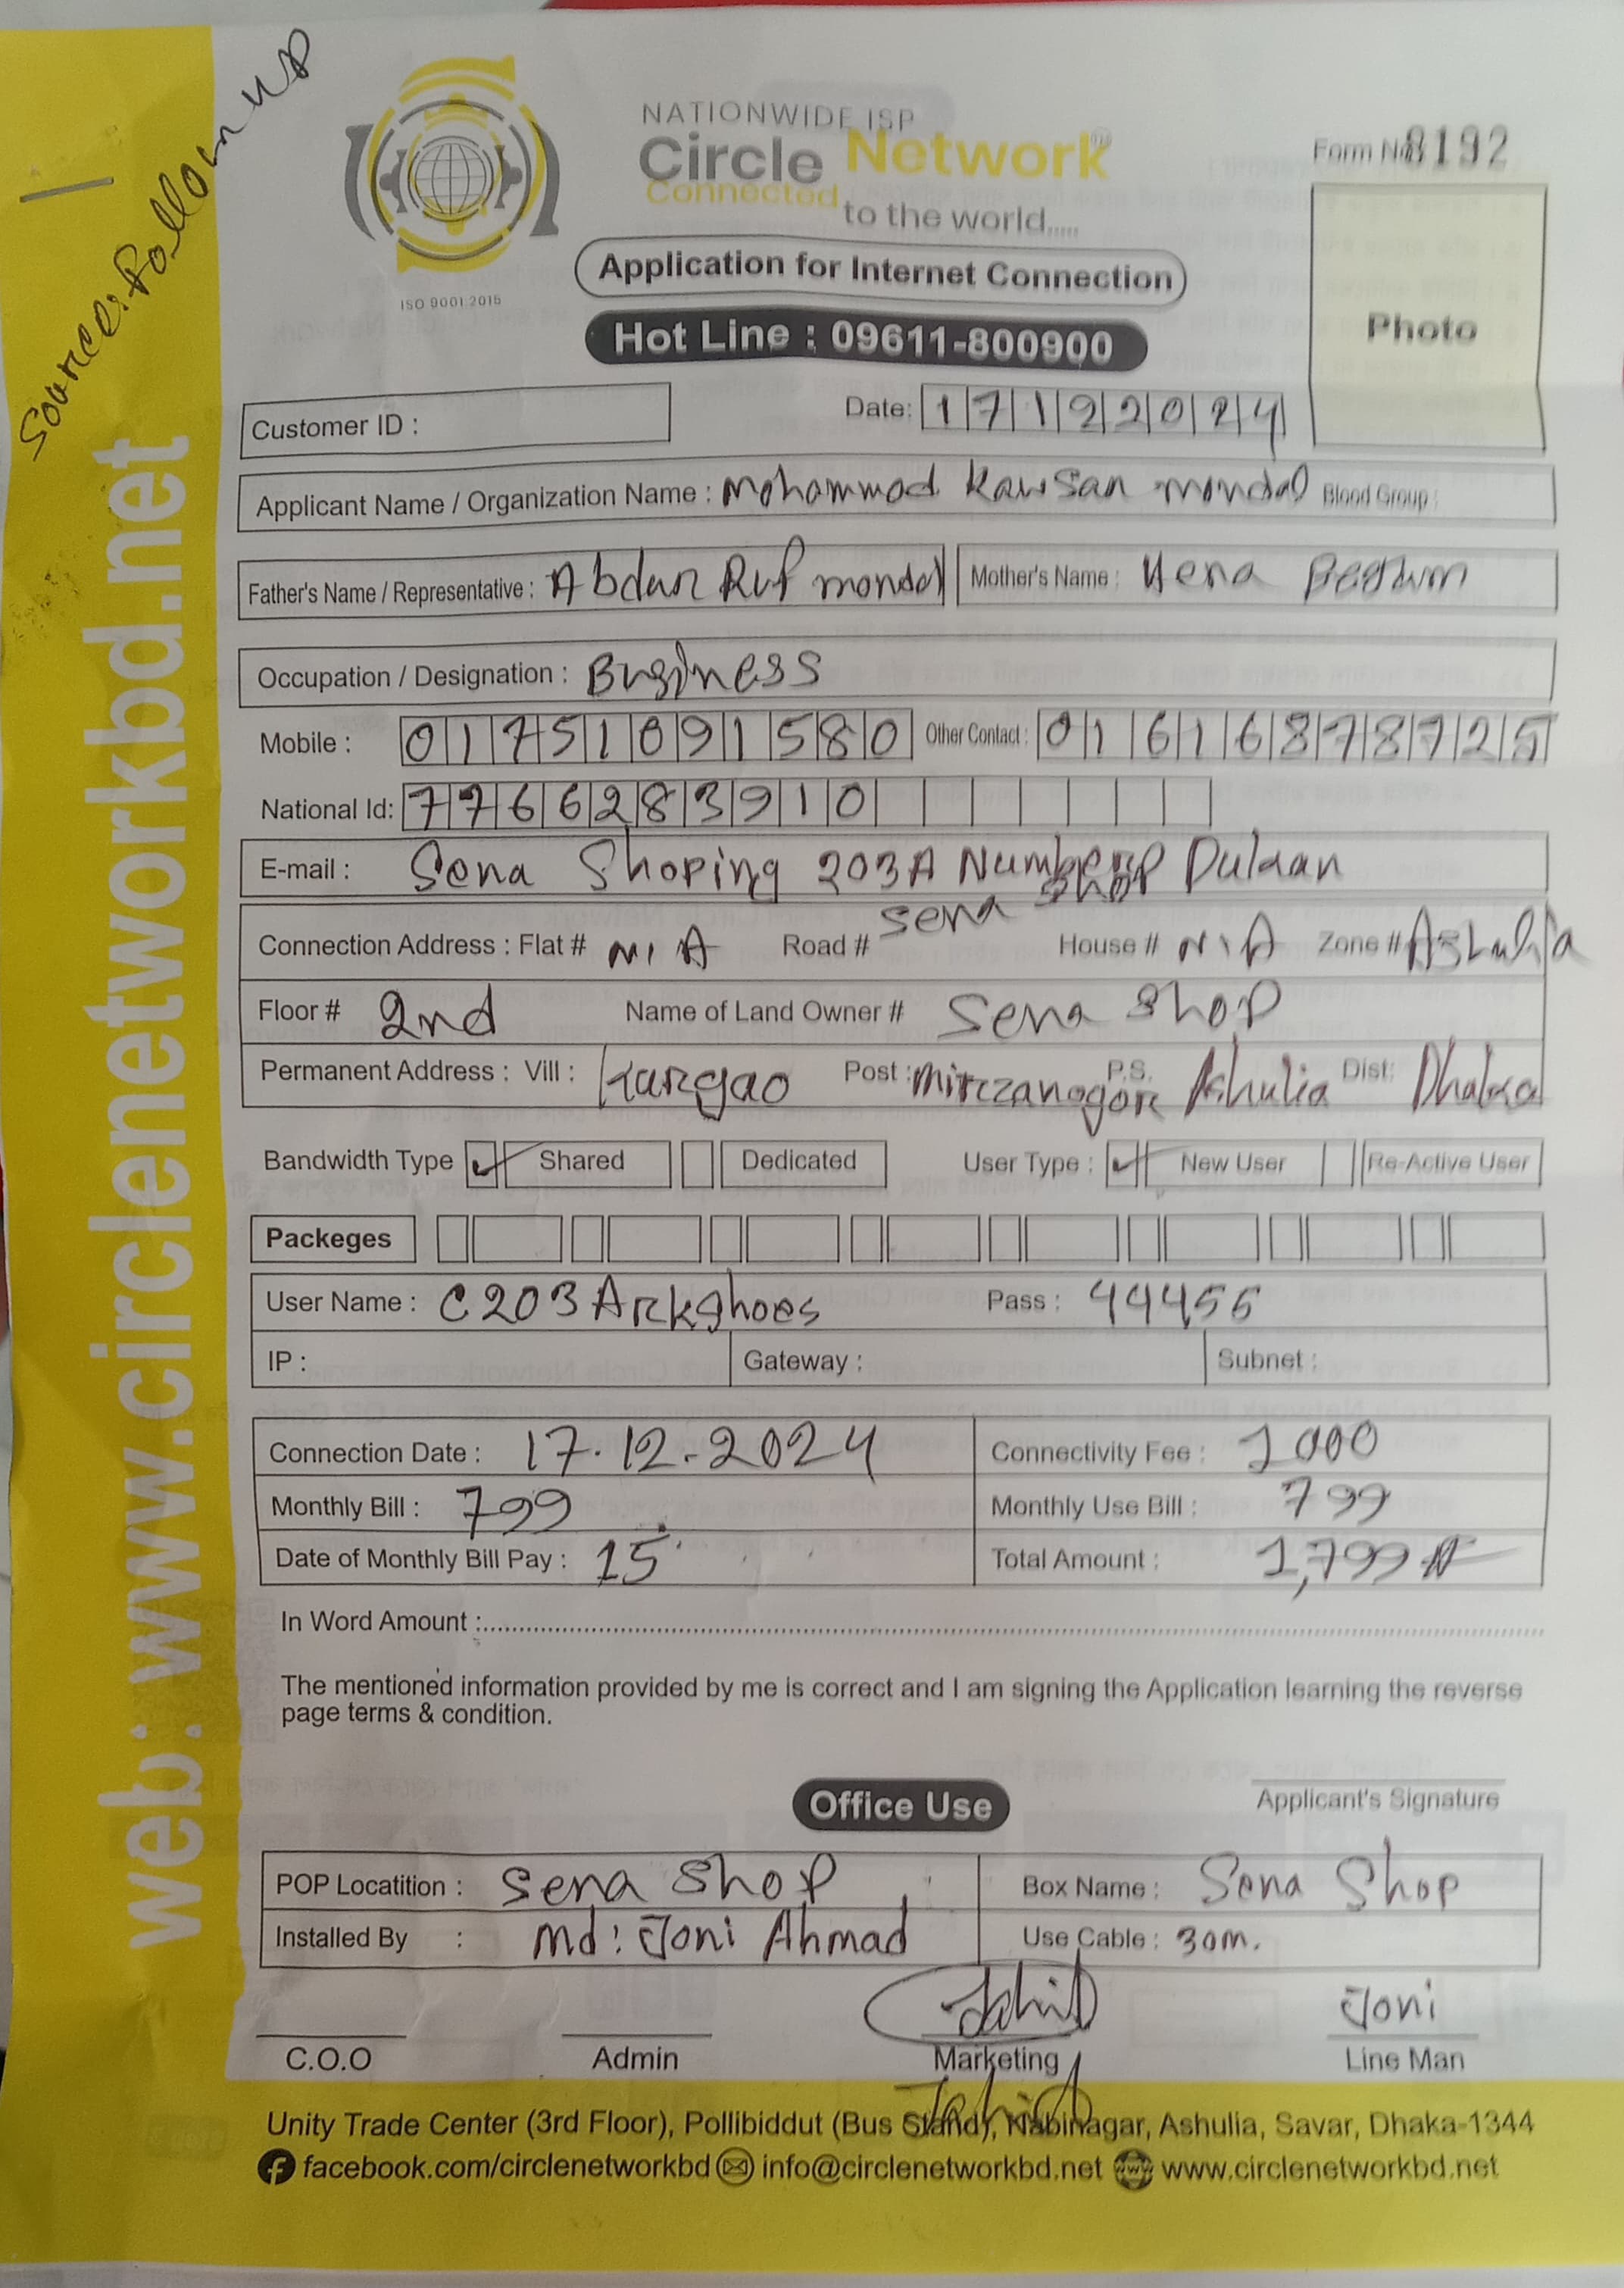 Source: Follow up
NATIONWIDE ISP
Circle Network
Connected to the world.....
ISO 9001:2015
Form No 8192
Photo
Application for Internet Connection
Hot Line : 09611-800900
Customer ID :
Date: 17122024
Applicant Name / Organization Name : Mohammod Kawsar mondal Blood Group :
Father's Name / Representative : Abdur Ruf mondal Mother's Name : Hena Begum
Occupation / Designation : Business
Mobile : 01751091580 Other Contact : 01616878725
National Id: 7766283910
E-mail : Sena Shoping 203A Number Dukan
Connection Address : Flat # N/A Road # Sena Shop House # N/A Zone # Ashulia
Floor # 2nd Name of Land Owner # Sena Shop
Permanent Address : Vill : Kargao Post : Mirzanogor P.S. Ashulia Dist: Dhaka
Bandwidth Type Shared Dedicated User Type : New User Re-Active User
Packeges
User Name : C203Arkshoes Pass : 44455
IP : Gateway : Subnet :
Connection Date : 17.12.2024 Connectivity Fee : 1000
Monthly Bill : 799 Monthly Use Bill : 799
Date of Monthly Bill Pay : 15 Total Amount : 1,799
In Word Amount :
The mentioned information provided by me is correct and I am signing the Application learning the reverse
page terms & condition.
Applicant's Signature
Office Use
POP Locatition : Sena Shop Box Name : Sena Shop
Installed By : Md: Joni Ahmad Use Cable : 30m.
Jahid Joni
C.O.O Admin Marketing Line Man
Jahid
Unity Trade Center (3rd Floor), Pollibiddut (Bus Stand), Nabinagar, Ashulia, Savar, Dhaka-1344
facebook.com/circlenetworkbd info@circlenetworkbd.net www.circlenetworkbd.net
web: www.circlenetworkbd.net